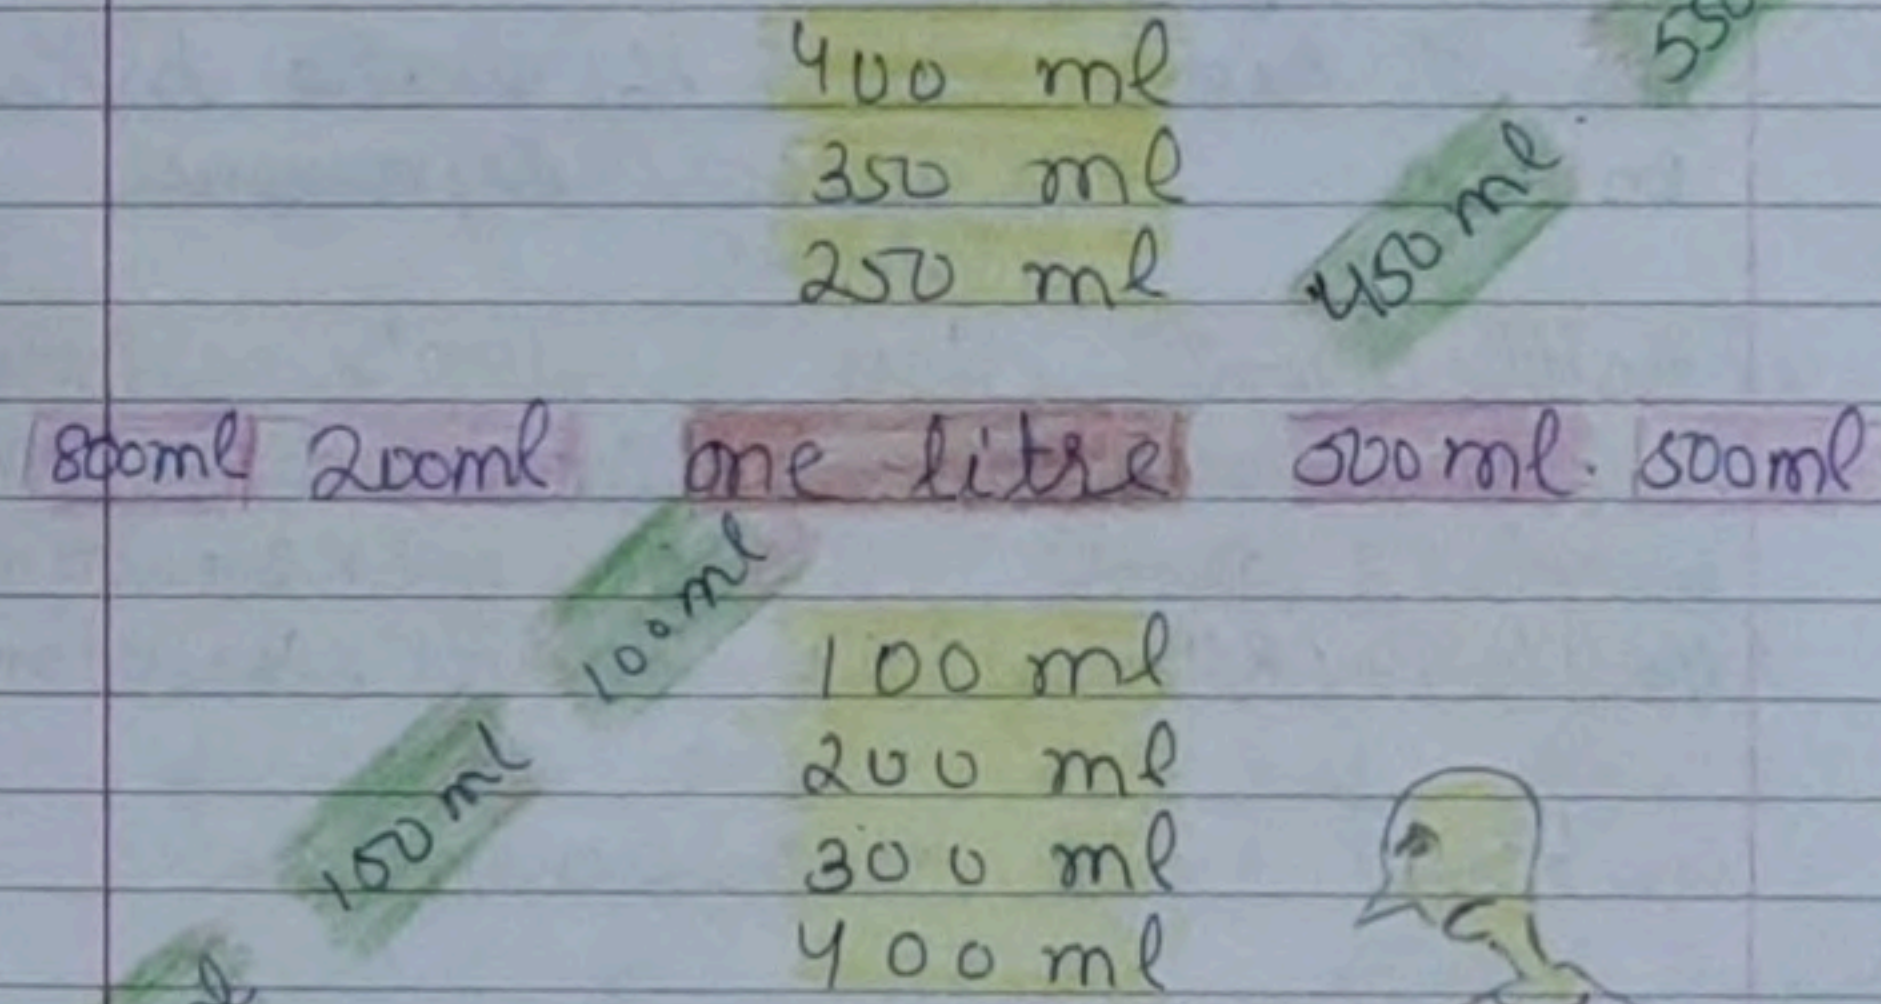 400 ml
550
350 ml
450 ml
250 ml
800ml 200ml one litre 500ml. 500ml
100ml
100 ml
150 ml
200 ml
300 ml
400 ml